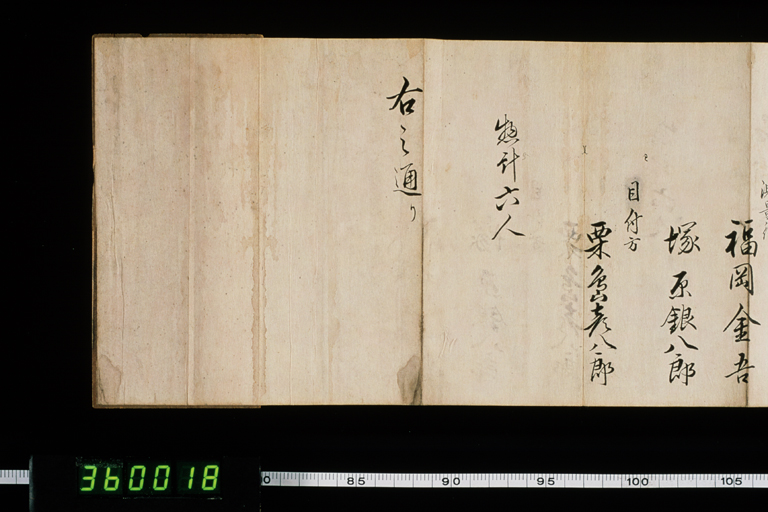 福岡金吾
塚原銀八郎
目付方
栗島彦八郎
惣計六人
右之通り
360018
85
90
95
100
105